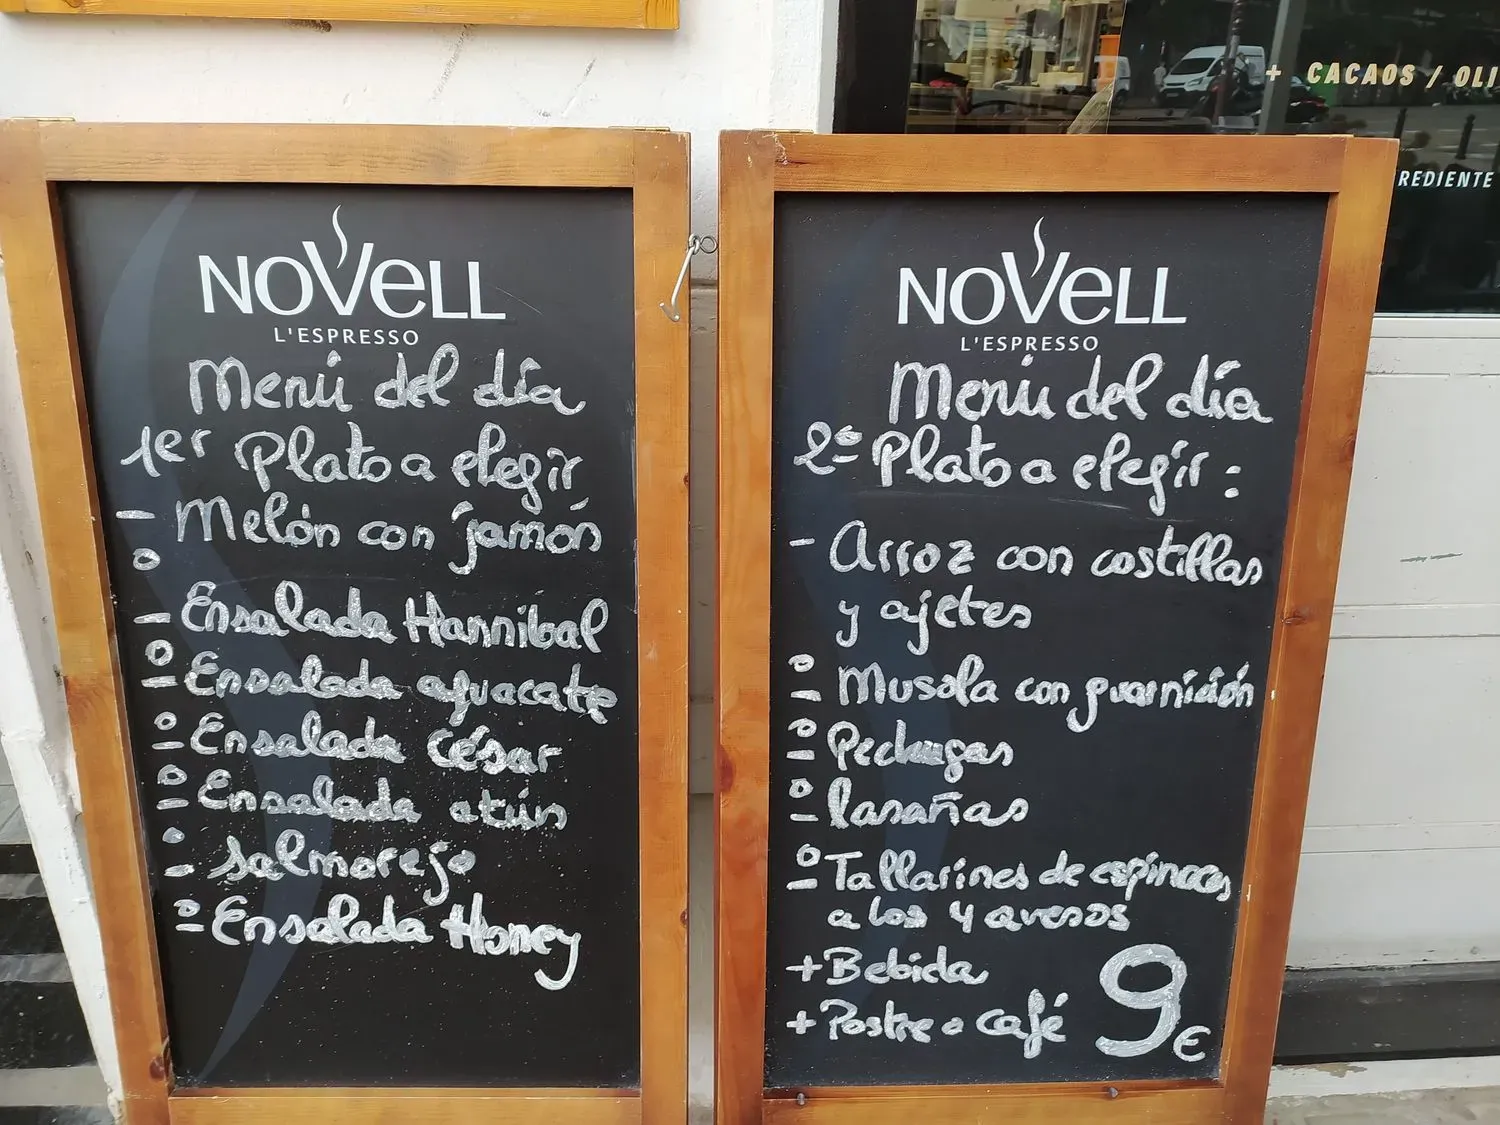 NOVELL
L'ESPRESSO
Menú del día
1er Plato a elegir
- Melón con jamón
o
- Ensalada Hannibal
o
- Ensalada aguacate
o
- Ensalada césar
o
- Ensalada atún
o
- Salmorejo
o
- Ensalada Honey
NOVELL
L'ESPRESSO
Menú del día
2º Plato a elegir:
- Arroz con costillas
y ajetes
o
- Musola con guarnición
o
- Pechugas
o
- lasañas
o
- Tallarines de espinacas
a los 4 avesos
+ Bebida
+ Postre o café 9€
+ CACAOS / OLI
REDIENTE